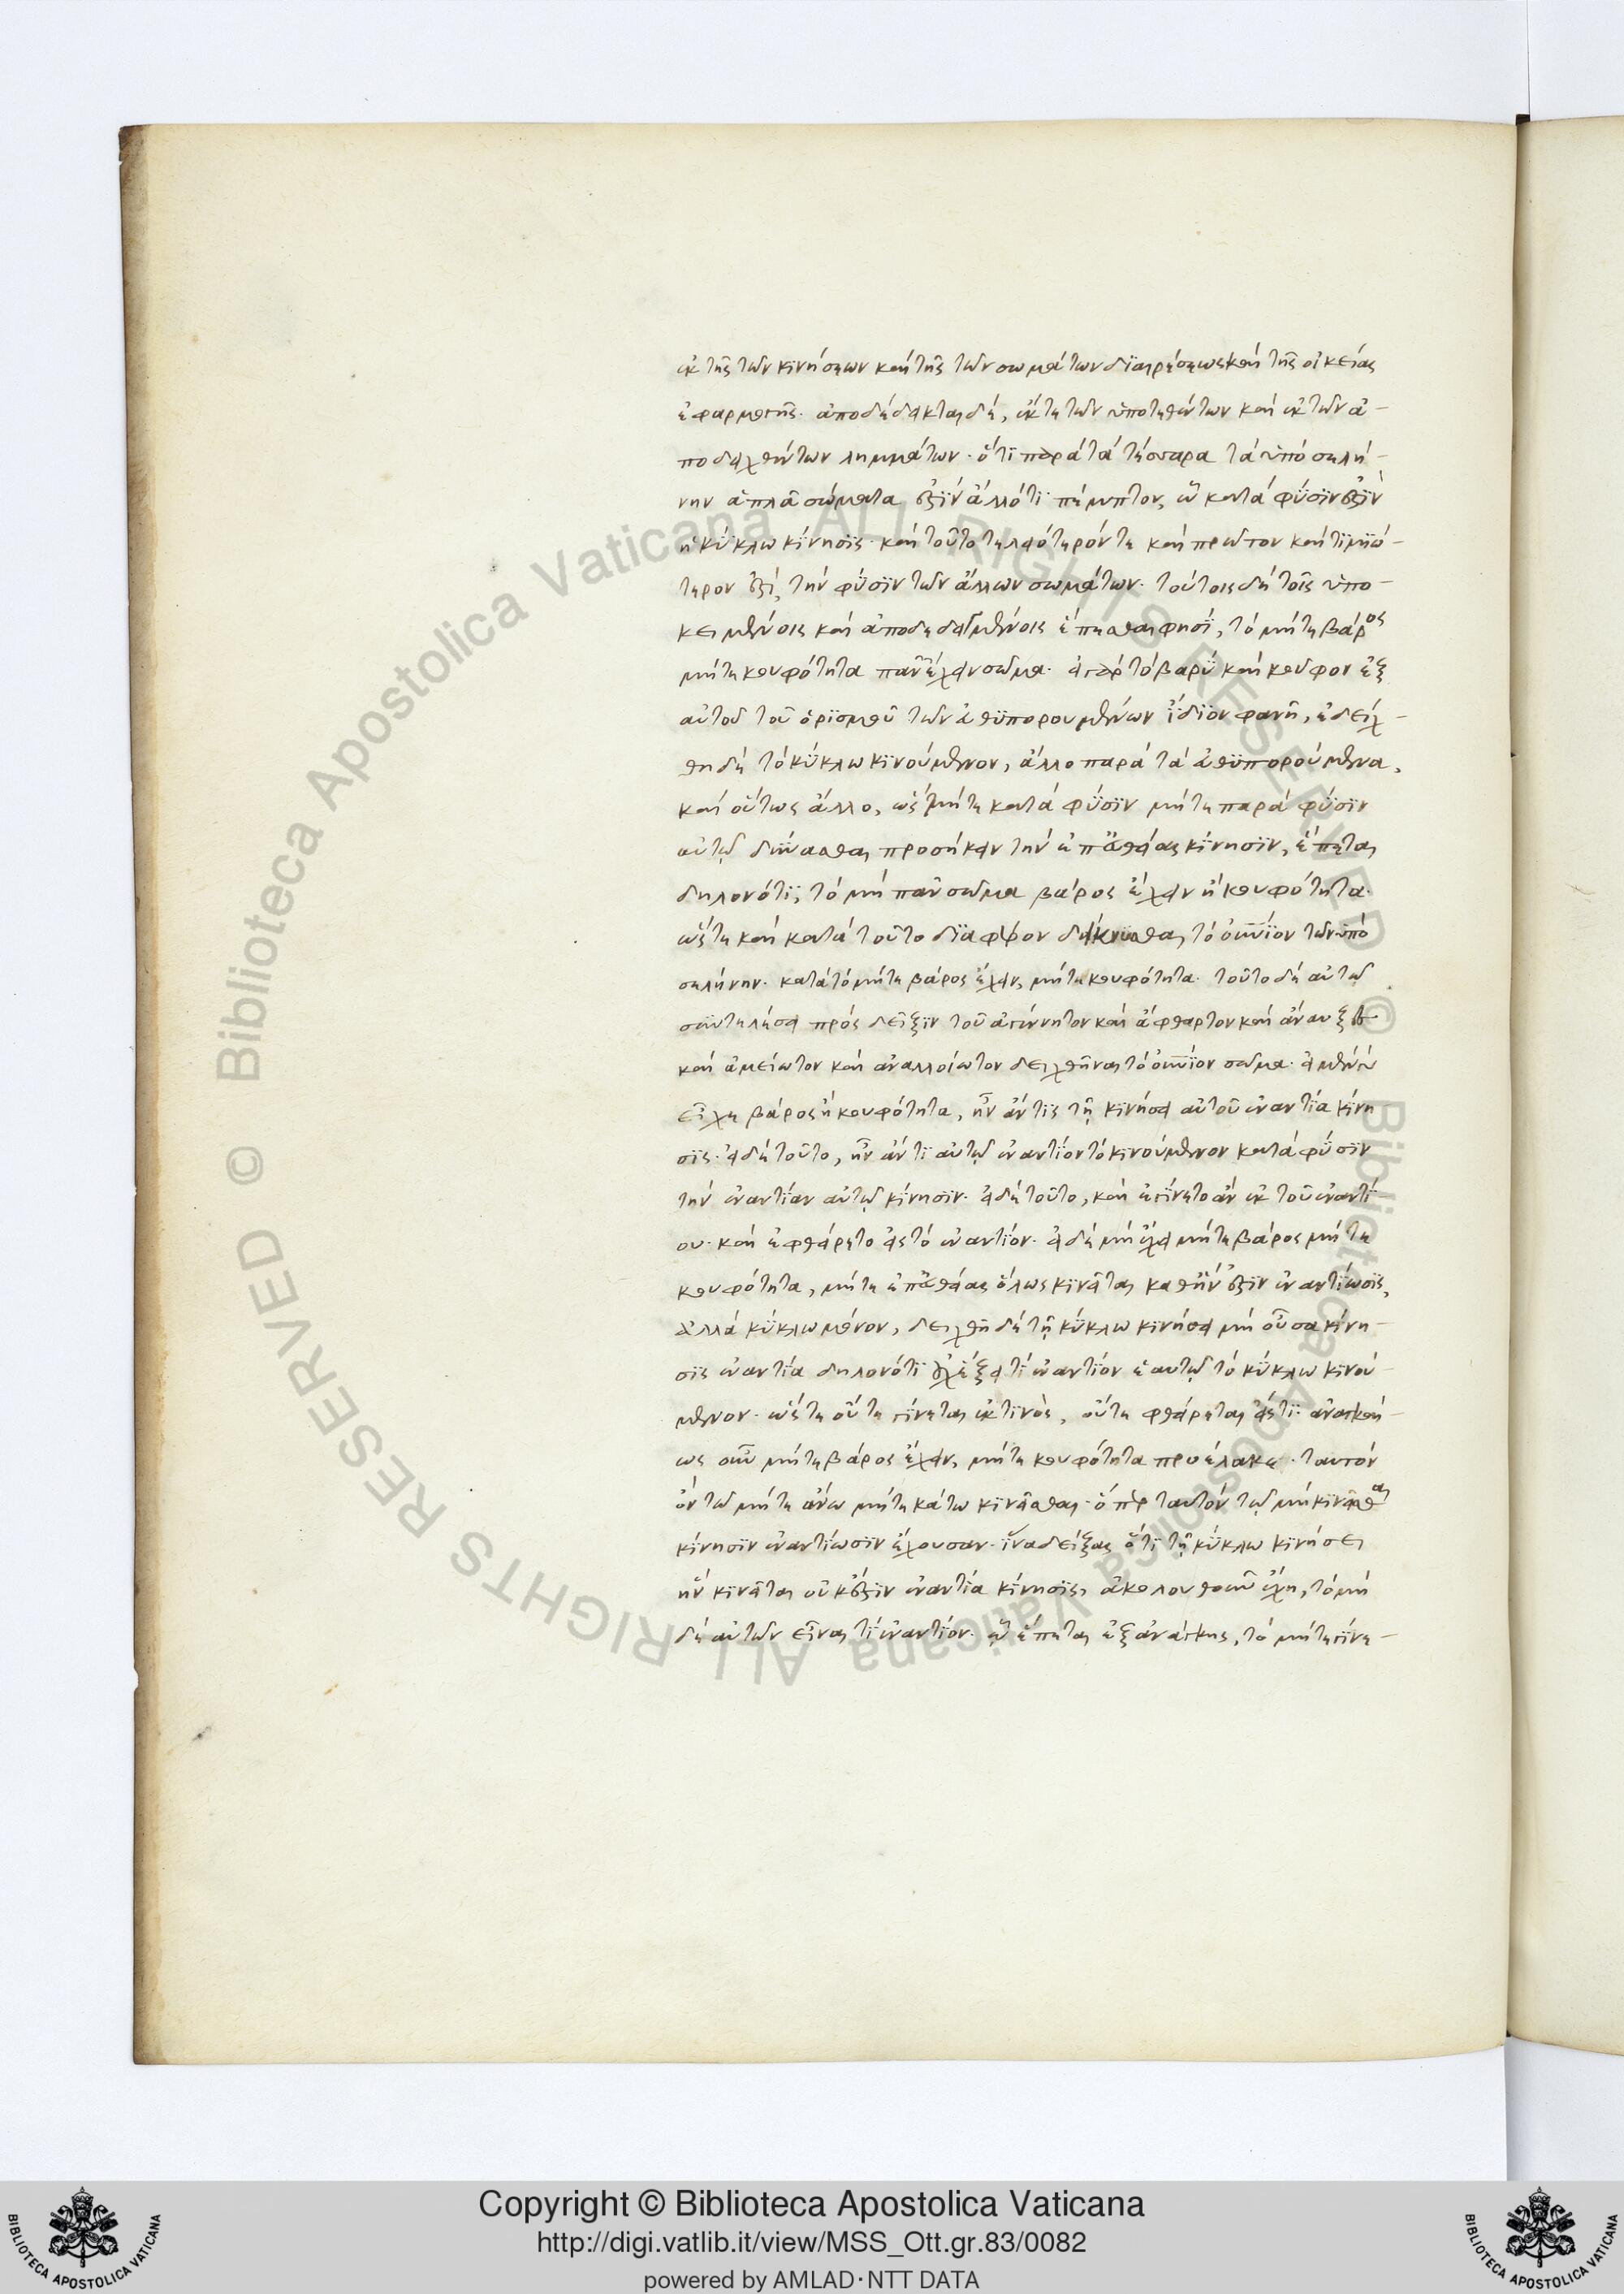 ἐκ τῆς τῶν κινήσεων καὶ τῆς τῶν σωμάτων διαιρέσεως καὶ τῆς οἰκείας
ἐφαρμογῆς. ἀποδέδεικται δὲ, ἔκ τε τῶν ὑποτεθέντων καὶ ἐκ τῶν ἀ-
ποδειχθέντων λημμάτων. ὅτι παρὰ τὰ τέσσαρα τὰ ὑπὸ σελή-
νην ἁπλᾶ σώματα ἐστὶν ἄλλό τι πέμπτον, ᾧ κατὰ φύσιν ἐστὶν
ἡ κύκλω κίνησις. καὶ τοῦτο τελεώτερόν τε καὶ πρῶτον καὶ τιμιώ-
τερον ἐστὶ, τὴν φύσιν τῶν ἄλλων σωμάτων. τούτοις δὴ τοῖς ὑπο-
κειμένοις καὶ ἀποδεδειγμένοις ἕπεσθαι φησὶ, τὸ μήτε βάρος
μήτε κουφότητα πᾶν ἔχειν σῶμα. εἰ γὰρ τὸ βαρὺ καὶ κοῦφον ἐξ
αὐτοῦ τοῦ ὁρισμοῦ τῶν εὐθυπορουμένων ἴδιον φανῆ, ἐδείχ-
θη δὲ τὸ κύκλω κινούμενον, ἄλλο παρὰ τὰ εὐθυπορούμενα,
καὶ οὕτως ἄλλο, ὡς μήτε κατὰ φύσιν μήτε παρὰ φύσιν
αὐτῷ δύνασθαι προσήκειν τὴν ἐπ' εὐθείας κίνησιν, ἕπεται
δηλονότι, τὸ μὴ πᾶν σῶμα βάρος ἔχειν ἢ κουφότητα.
ὥστε καὶ κατὰ τοῦτο διάφορον δείκνυσθαι τὸ οὐνίον τῶν ὑπὸ
σελήνην. κατὰ τὸ μήτε βάρος ἔχειν, μήτε κουφότητα. τοῦτο δὲ αὐτῷ
συντελέσει πρὸς δεῖξιν τοῦ ἀγέννητον καὶ ἄφθαρτον καὶ ἀναυξὲς
καὶ ἀμείωτον καὶ ἀναλλοίωτον δειχθῆναι τὸ οὐνίον σῶμα. εἰ μὲν οὖν
εἶχε βάρος ἢ κουφότητα, ἦν ἄν τις τῇ κινήσει αὐτοῦ ἐναντία κίνη
σις. εἰ δὲ τοῦτο, ἦν ἄν τι αὐτῷ ἐναντίον τὸ κινούμενον κατὰ φύσιν
τὴν ἐναντίαν αὐτῷ κίνησιν. εἰ δὲ τοῦτο, καὶ ἐγίνετο ἂν ἐκ τοῦ ἐναντί-
ου. καὶ ἐφθείρετο εἰς τὸ ἐναντίον. εἰ δὲ μὴ ἔχει μήτε βάρος μήτε
κουφότητα, μήτε ἐπ' εὐθείας ὅλως κινεῖται καθ' ἣν ἐστὶν ἐναντίωσις,
ἀλλὰ κύκλω μόνον, δειχθῆ δὲ τῇ κύκλω κινήσει μὴ οὖσα κίνη-
σις ἐναντία δηλονότι οὐχ ἕξει τί ἐναντίον ἑαυτῷ τὸ κύκλω κινού-
μενον. ὥστε οὔτε γίνεται ἔκ τινος, οὔτε φθείρεται εἴς τι. ἀναγκαί-
ως οὖν μήτε βάρος ἔχειν, μήτε κουφότητα προέλαβε. ταυτὸν
ὂν τῶ μήτε ἄνω μήτε κάτω κινεῖσθαι. ὅπερ ταυτὸν τῷ μὴ κινεῖσθαι
κίνησιν ἐναντίωσιν ἔχουσαν. ἵνα δείξας ὅτι τῇ κύκλω κινήσει
ἣν κινεῖται οὐκ ἔστιν ἐναντία κίνησις, ἀκόλουθον ἔχη, τὸ μὴ
δὲ αὐτῶν εἶναι τὶ ἐναντίον. ᾧ ἕπεται ἐξ ἀνάγκης, τὸ μήτε γίνε-